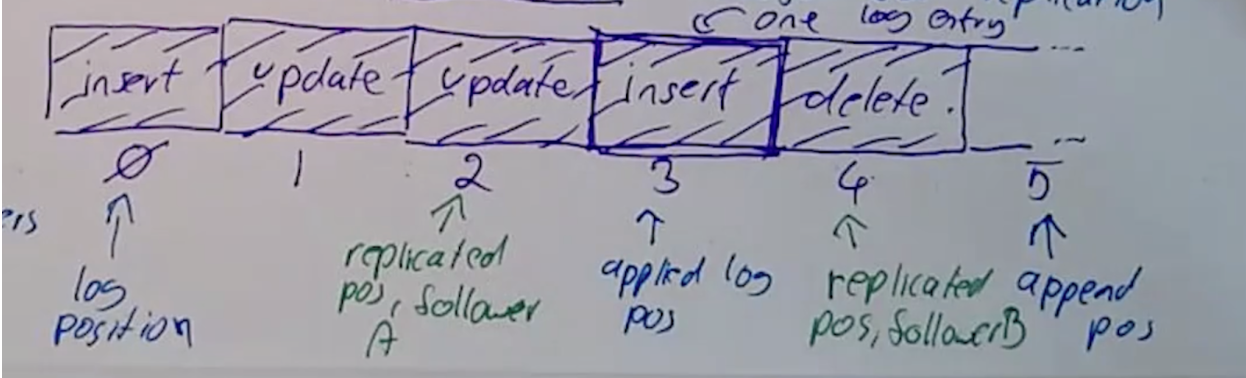 one log entry
insert update update insert delete. ...
...
0 1 2 3 4 5
ers
log
position
replicated
pos, follower
A
applied log
pos
replicated
pos, follower B
append
pos